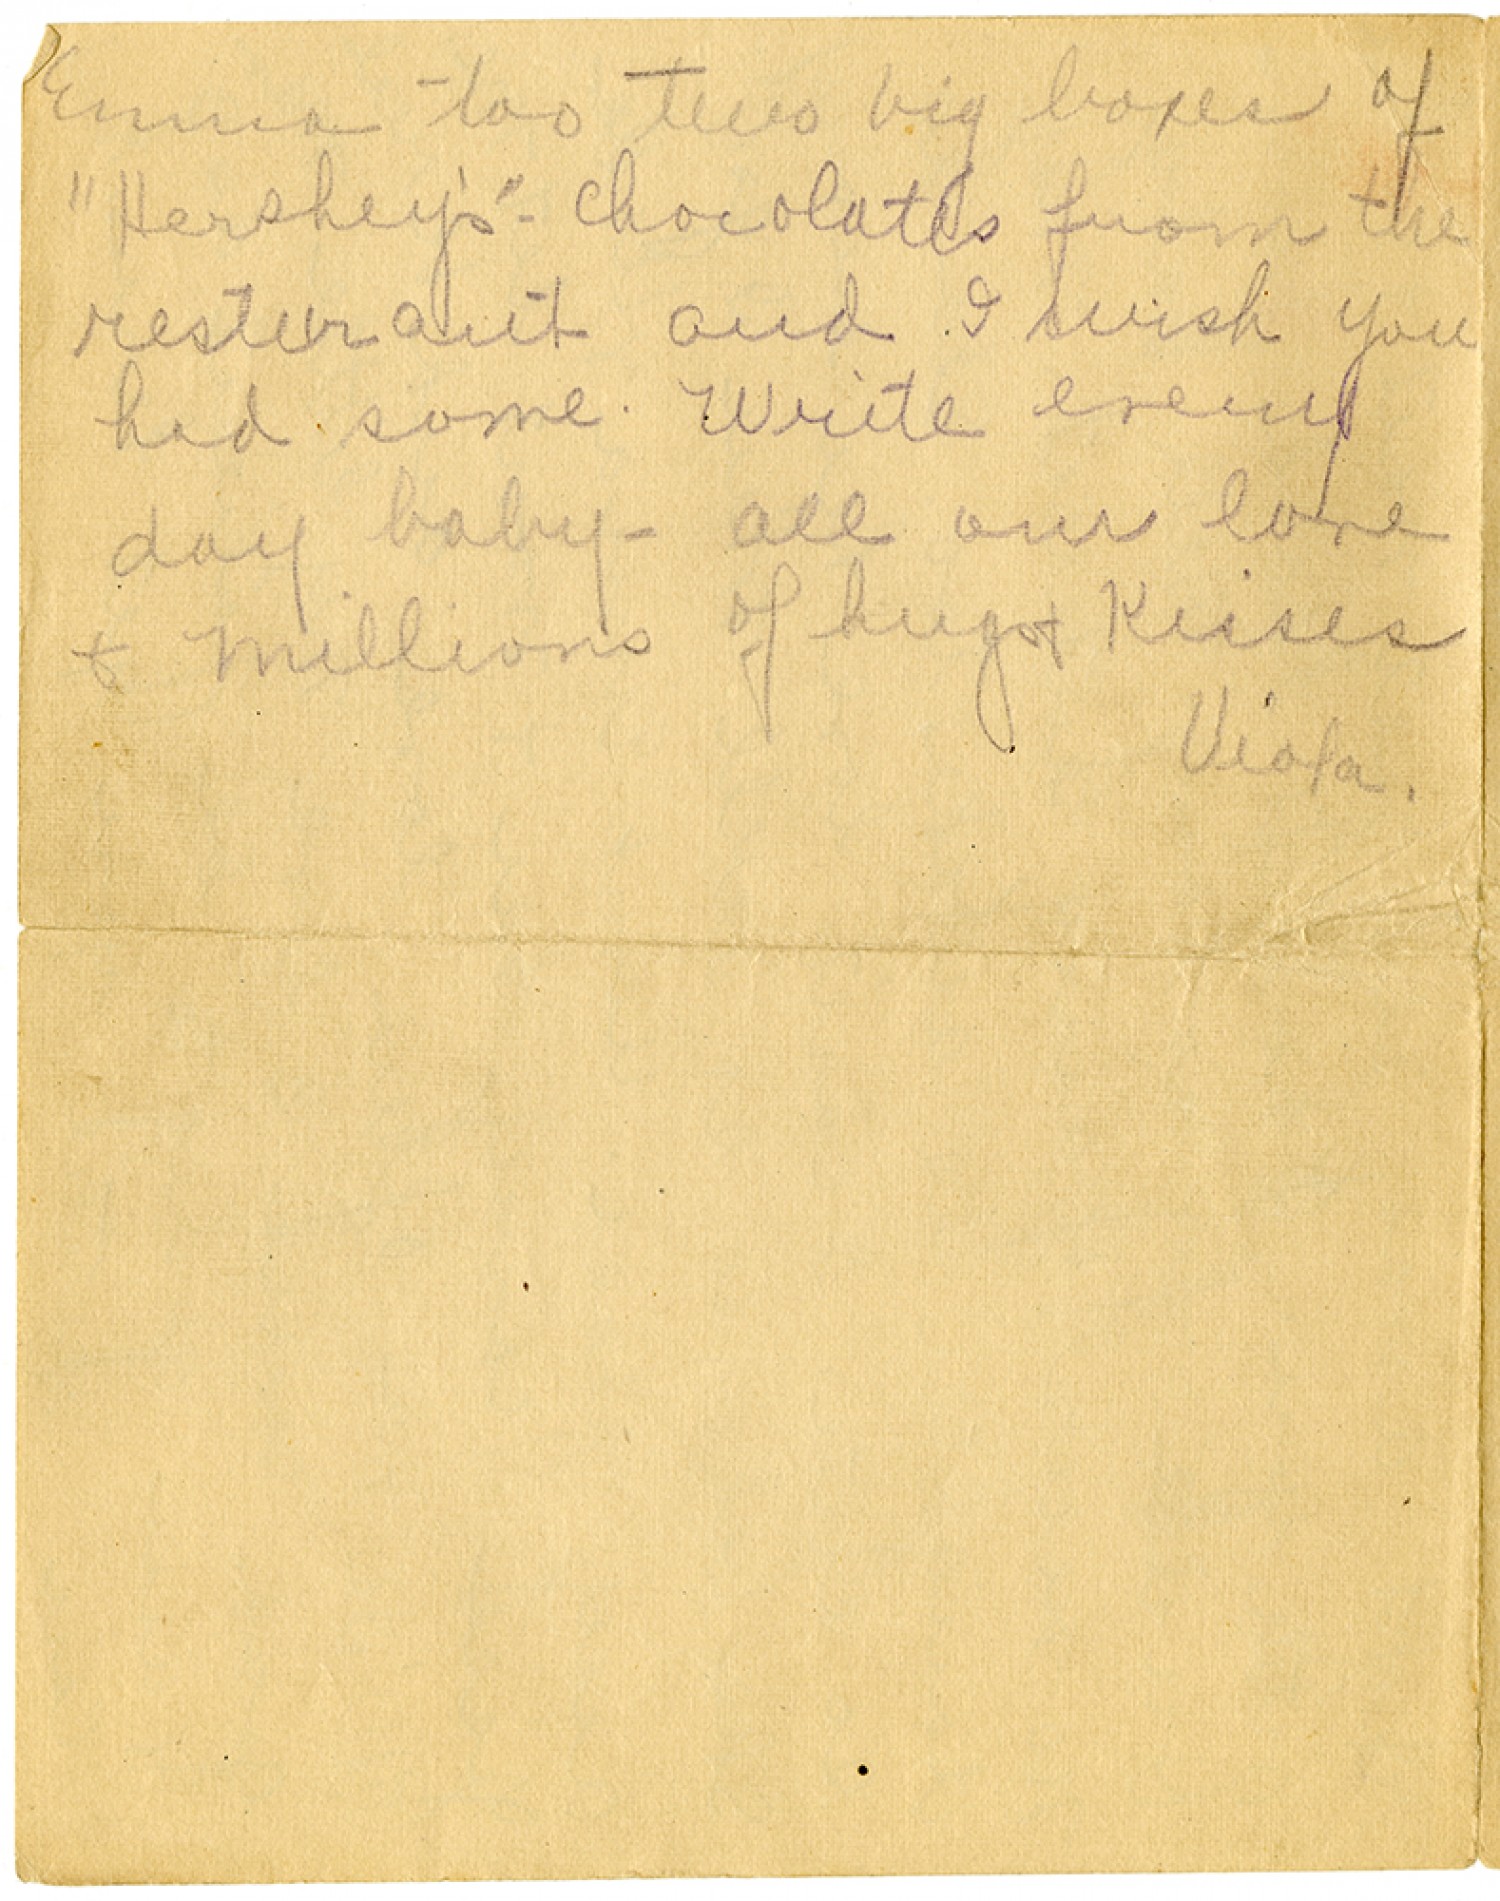 Emma too two big boxes of
"Hershey's"- chocolates from the
resturant and I wish you
had some. Write every
day baby - all our love
& Millions of hugs & Kisses
Viola.